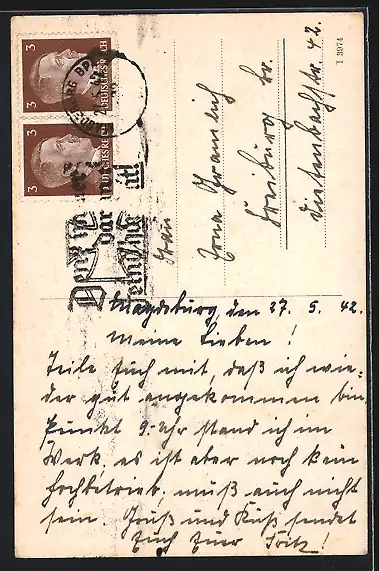 3 DEUTSCHES REICH
3 DEUTSCHES REICH
MAGDEBURG BPA
I 3974
Frau
Erna
Freiburg Br.
42.
Magdeburg, den 27. 5. 42.
Meine Lieben!
Teile Euch mit, daß ich wie=
der gut angekommen bin
Punkt 9 Uhr stand ich im
Werk, es ist aber noch kein
Hochbetrieb, muß auch nicht
sein. Gruß und Kuß sendet
Euch Euer Fritz!